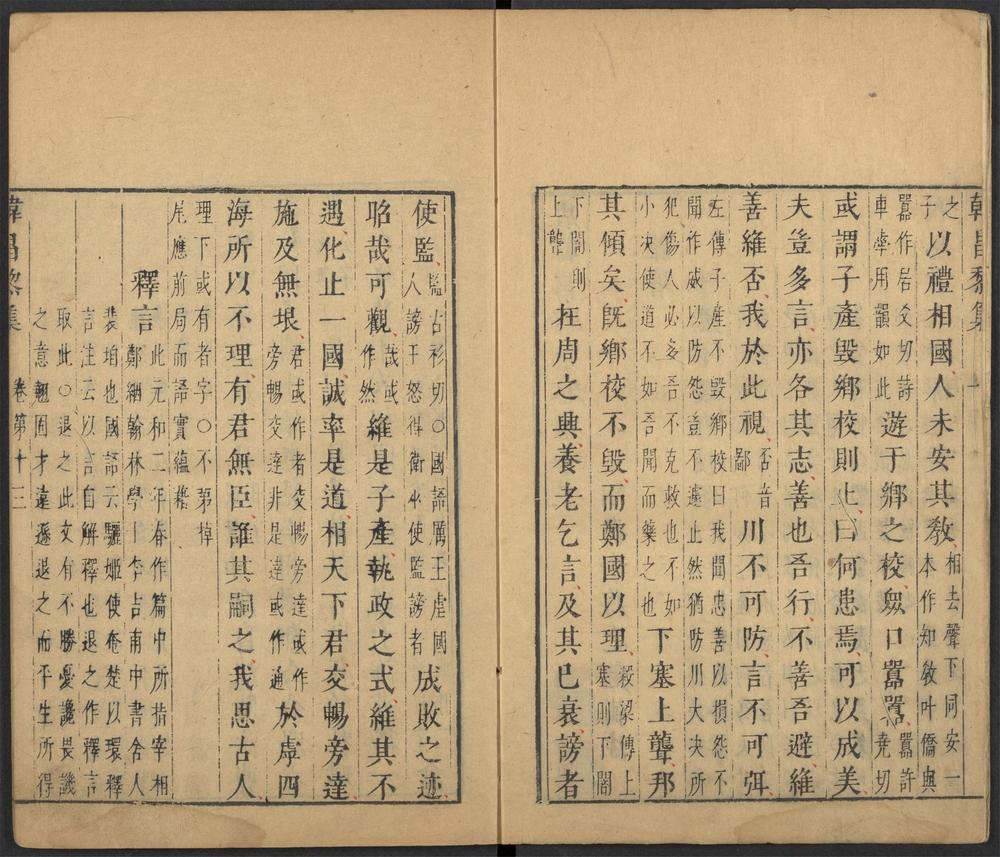 韓昌黎集
之以禮相國人未安其敎相去聲下同安一
子 本作知敎叶僑與
囂作居爻切詩遊于鄉之校衆口囂囂囂許
車舝用韻如此 堯切
或謂子產毀鄉校則止曰何患焉可以成美
夫豈多言亦各其志善也吾行不善吾避維
善維否我於此視否音鄙川不可防言不可弭
左傳子產不毀鄉校曰我聞忠善以損怨不
聞作威以防怨豈不遽止然猶防川大决所
犯傷人必多吾不克救也不如
小决使道不如吾聞而藥之也下塞上聾邦
其傾矣旣鄉校不毀而鄭國以理榖梁傳上塞則下闇
下闇則上聾在周之興養老乞言及其已衰謗者
使監監古衫切○國語厲王虐國
人謗王怒得衛巫使監謗者成敗之迹
昭哉可觀哉或作然維是子產執政之式維其不
遇化止一國誠率是道相天下君交暢旁達
施及無垠君或作者交暢旁達或作
旁暢交達非是達或作通於虖四
海所以不理有君無臣誰其嗣之我思古人
理下或有者字○不第掉
尾應前局而語實蘊藉
釋言此元和二年春作篇中所指宰相
鄭絪翰林學士李吉甫中書舍人
裴垍也國語云驪姬使奄楚以環釋
言注云以言自解釋也退之作釋言
取此○退之此文有不勝憂讒畏譏
之意翺固才違遜退之而平生所得
韓昌黎集 卷第十三